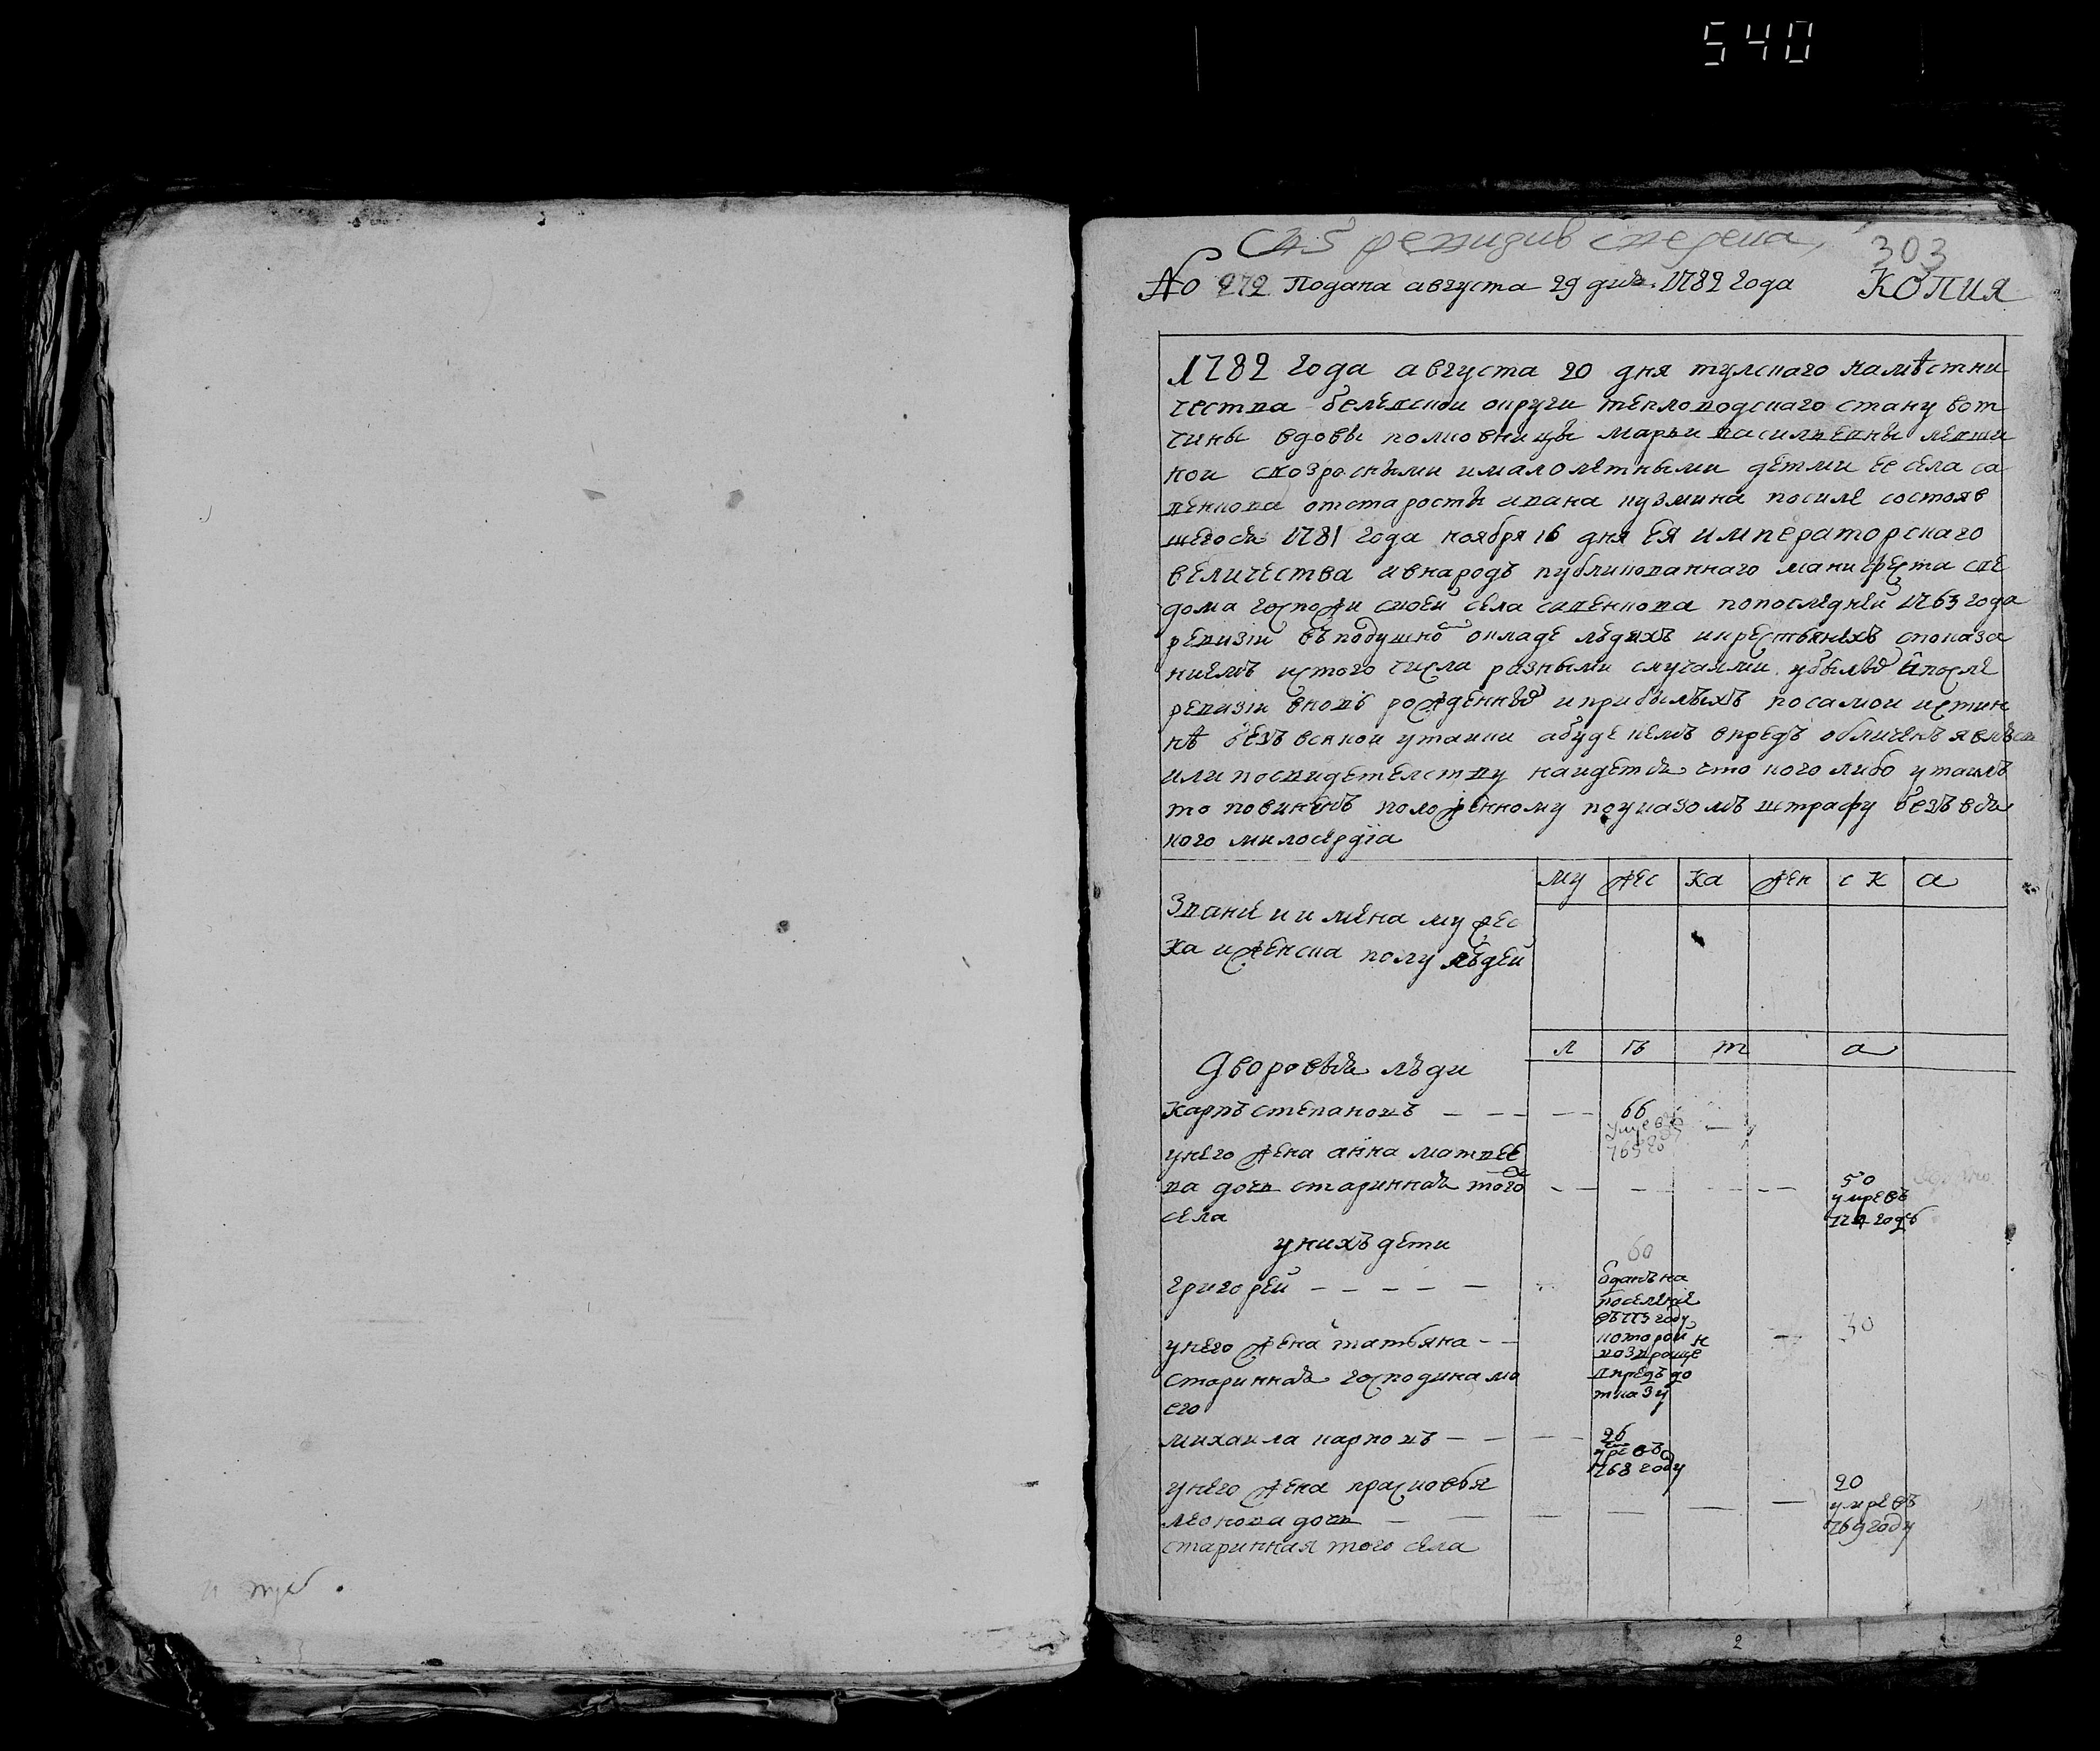 540
303
No 272 Подана августа 29 дня 1782 года КОПИЯ
1782 года августа 20 дня тулскаго намѣстни
чества белевскои округи тепловодскаго стану вот
чины вдовы полковницы марьи васильевны левши
нои свозросными ималолетными детми ее села са
венкова отстаросты ивана кузмина посиле состояв
шегося 1781 года ноября 16 дня ея императорскаго
величества ивнародъ публикованнаго манифеста све
дома госпожи своей села савенкова попоследней 1763 года
ревизіи въ подушно окладе людяхъ икрестьянехъ споказа
ниемъ истого числа разными случаями убылых ипосле
ревизіи вновь рожденных иприбылыхъ посамои истин
нѣ безъ всякои утаики абуде кемъ впредъ обличенъ явлюся
или посвидетелству наидется что кого либо утаилъ
то повиненъ положенному поуказомъ штрафу безъ вся
кого милосердіа
му жес ка жен ск а
Звание и имена мужес
ка иженска полу людей
л ѣ т а
Дворовыя люди
карпъ степановъ — — — — 66
умре въ
765 го
унего жена анна матвее
ва дочь стариннаѧ того — — — — — 50
села
умре въ
году
унихъ дети
60
григорей — — — — —
отданъ на
поселение
въ 773 году
которой
унего жена татьяна — — — 30
стариннаѧ господина мо
его
михаила карповъ — — — — 26
умре въ
1768 году
унего жена прасковья 20
леонова дочь — — — — — —
умре въ
769 году
старинная того села
2